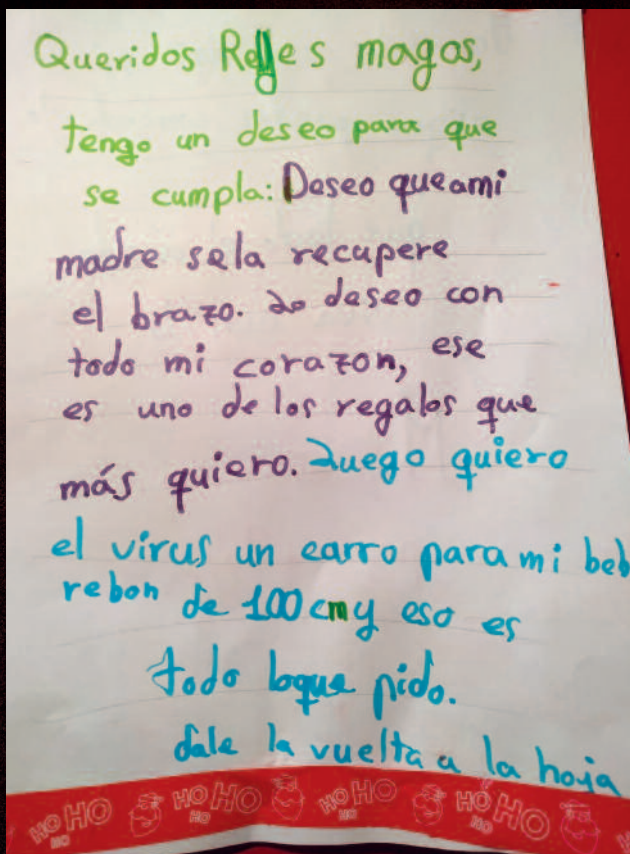 Queridos Reyes magos,
tengo un deseo para que
se cumpla: Deseo queami
madre sela recupere
el brazo. Lo deseo con
todo mi corazon, ese
es uno de los regalos que
más quiero. Luego quiero
el virus un carro para mi beb
rebon de 100 cm y eso es
todo loque pido.
dale la vuelta a la hoja
HO HO HO HO HO HO HO HO HO HO HO HO